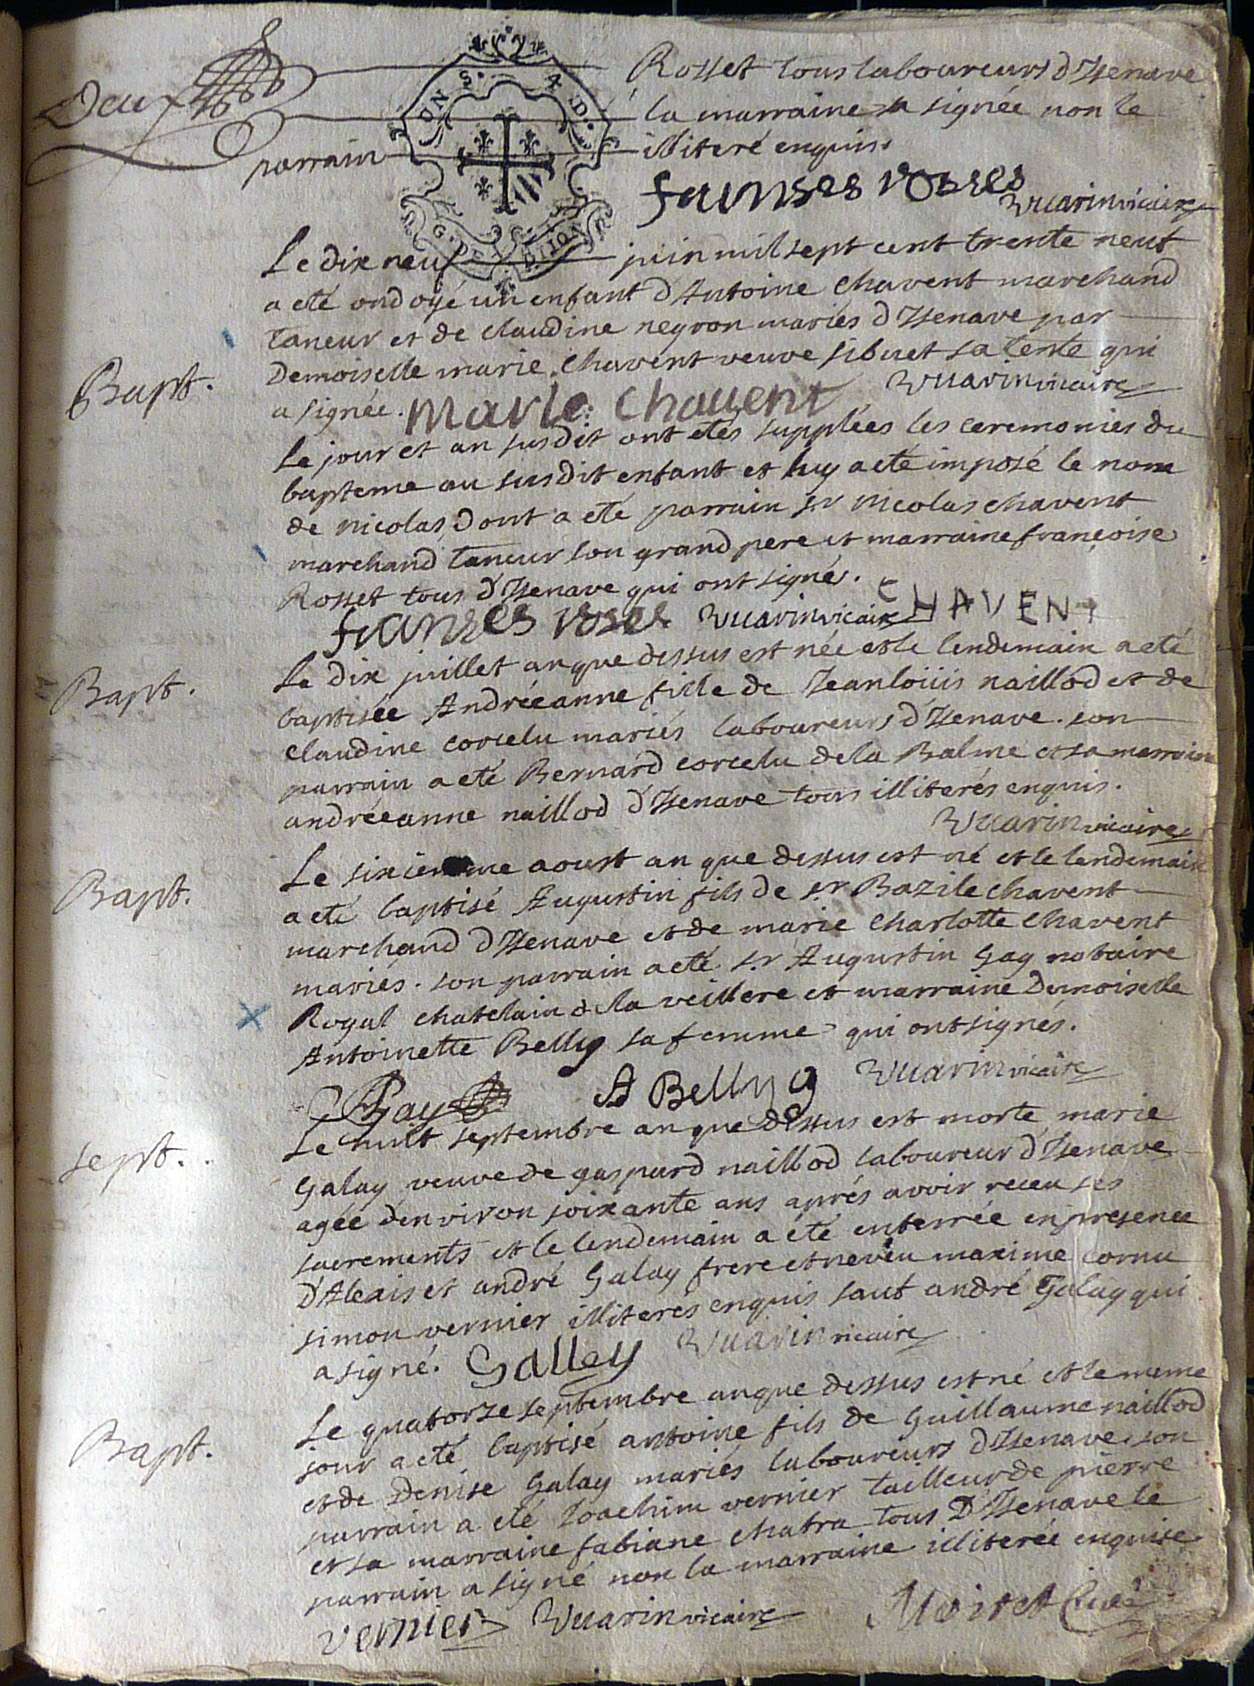 Deux
Rosset tous laboureurs d'Izenave
la marraine a signée non le
parrain illiteré enquis.
franses roses Vuarin vicaire
G. DE DIJON
Le dix neuf juin mil sept cent trente neuf
a eté ondoyé un enfant d'Antoine Chavent marchand
taneur et de claudine negron mariés d'Izenave par
Demoiselle marie Chavent veuve sibuet sa tente qui
a signée. marie chauent Vuarin vicaire
Bapt.
Le jour et an susdit ont etés supplées les ceremonies du
bapteme au susdit enfant et luy a eté imposé le nom
de nicolas, Dont a eté parrain sr nicolas chavent
marchand taneur son grand pere et marraine françoise
Rosset tous d'Izenave qui ont signés.
franses roses Vuarin vicaire CHAVENT
Bapt.
Le dix juillet an que dessus est née et le lendemain a eté
baptisée Andréeanne fille de Jeanloüis naillod et de
claudine corcelu mariés laboureurs d'Izenave. son
parrain a eté Bernard corcelu de la Balme et sa marraine
andréeanne naillod d'Izenave tous illiterés enquis.
Vuarin vicaire
Bapt.
Le sixieme aoust an que dessus est né et le lendemain
a eté baptisé Augustin fils de sr Bazile chavent
marchand d'Izenave et de marie Charlotte Chavent
mariés. son parrain a eté sr Augustin Gay notaire
Royal chatelain de la veillere et marraine Demoiselle
Antoinette Belly sa femme qui ont signés.
Gay A Belly Vuarin vicaire
sept.
Le huit septembre an que dessus est morte marie
Galay veuve de gaspard naillod laboureur d'Izenave
agée d'environ soixante ans aprés avoir receu ses
sacrements et le lendemain a été enterrée en presence
d'Alexis et andré Galay frere et neveu maxime cornu
simon vernier illiterés enquis sauf andré Galay qui
a signé. Galley Vuarin vicaire
Bapt.
Le quatorze septembre an que dessus est né et le meme
jour a eté baptisé antoine fils de Guillaume naillod
et de Denise Galay mariés laboureurs d'Izenave. son
parrain a eté Joachim vernier tailleur de pierre
et sa marraine fabiane chatra tous d'Izenave le
parrain a signé non la marraine illiterée enquise
vernier Vuarin vicaire Curé